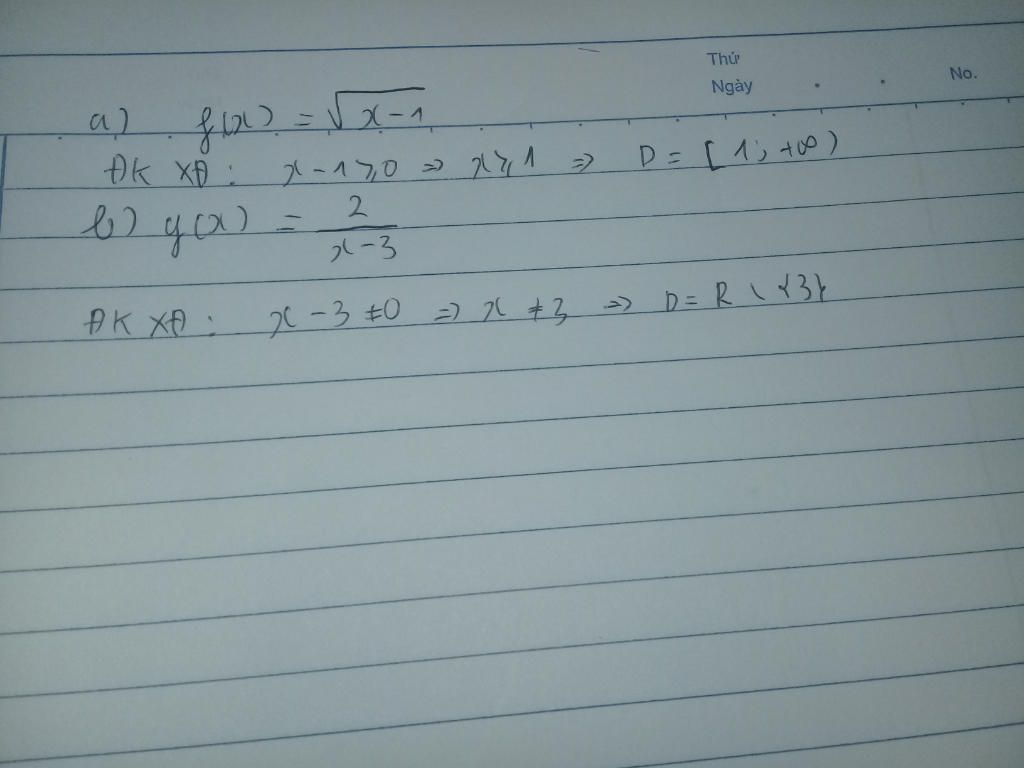 Thứ
Ngày . . No.
a) f(x) = √x-1
ĐK XĐ : x - 1 ⩾ 0 => x ⩾ 1 => D = [ 1 ; +∞)
b) y(x) = 2/x-3
ĐK XĐ : x - 3 ≠ 0 => x ≠ 3 => D = R \ {3}